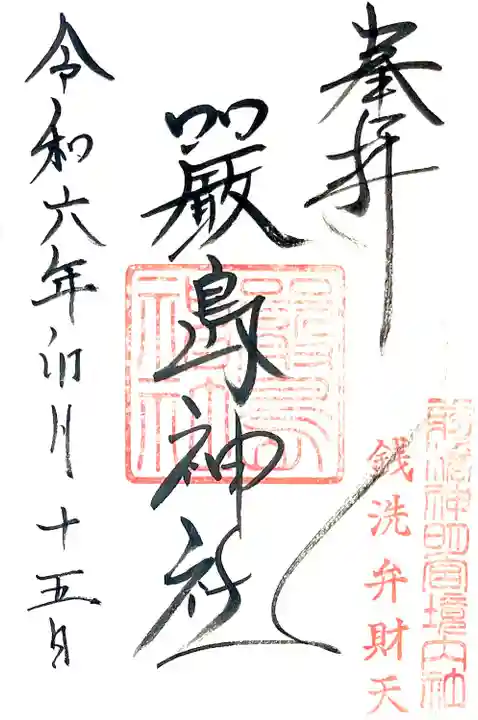 奉拝
前橋神明宮境内社
銭洗弁財天
嚴島神社
嚴島
神社
令和六年卯月十五日